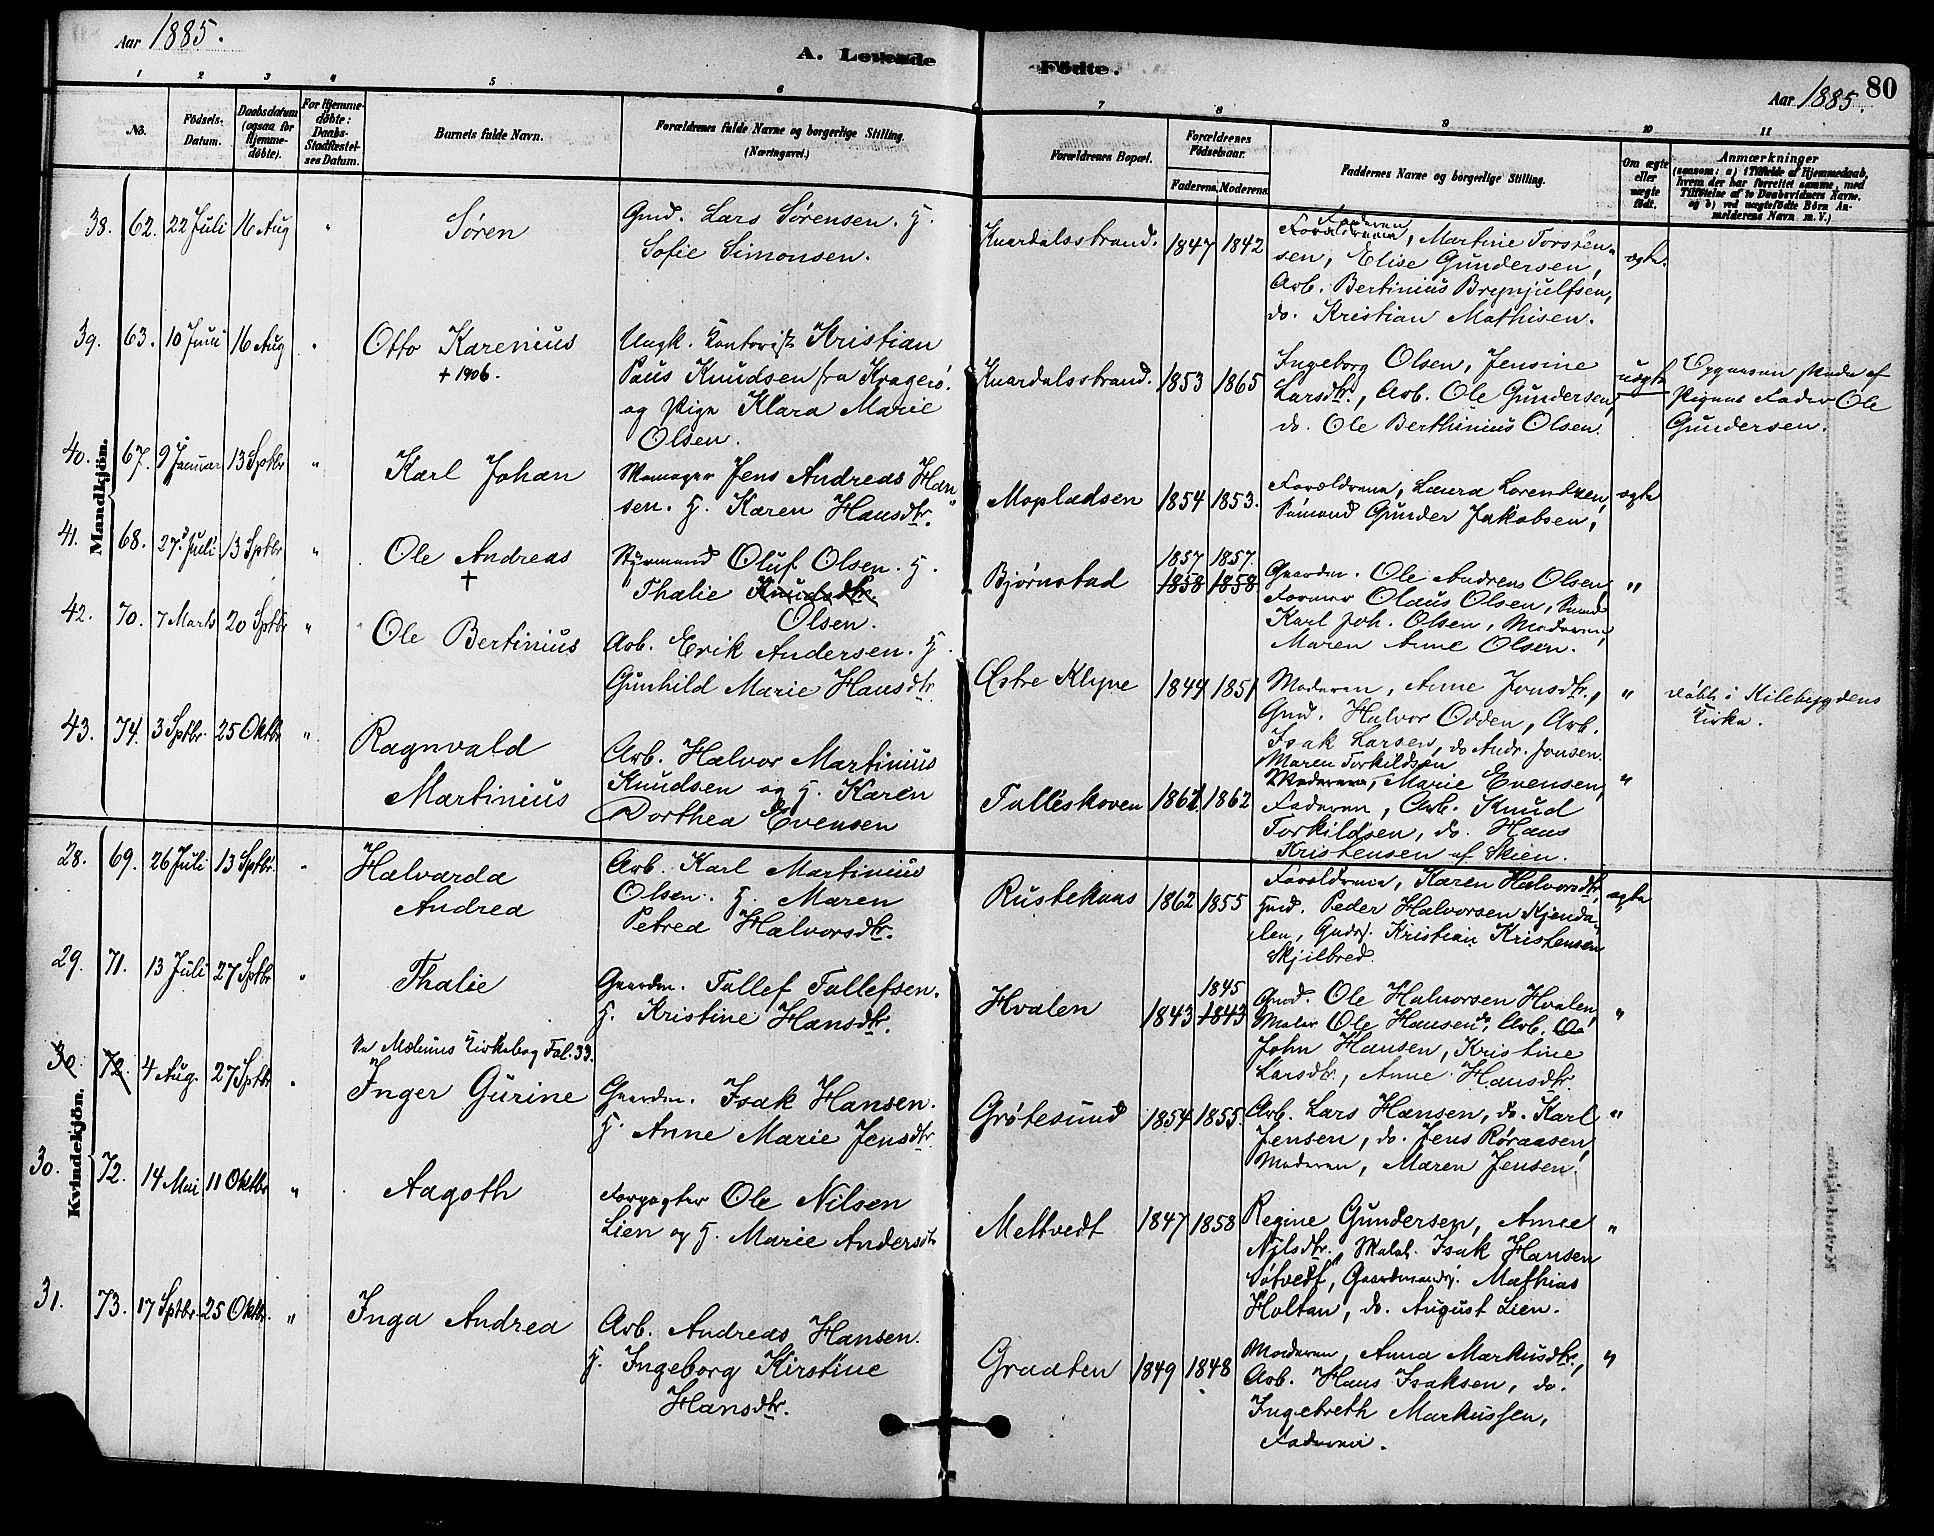 Aar 1885.
A. Levende Födte.
Aar 1885. 80
1 2 3 4 5 6 7 8 9 10 11
No. Födsels-Datum. Daabsdatum (ogsaa for Hjemme-döbte). For Hjemme-döbte: Daabs-Stadfæstel-ses Datum. Barnets fulde Navn. Forældrenes fulde Navne og borgerlige Stilling. (Næringsvei.) Forældrenes Bopæl. Forældrenes Födselsaar. Faderens. Moderens. Faddernes Navne og borgerlige Stilling. Om ægte eller uægte födt. Anmærkninger (saasom: a) i Tilfælde af Hjemmedaab, hvem der har forrettet samme, med Tilföielse af to Daabsvidners Navne. og b) ved uægtefödte Börn An-melderens Navn m. V.)
Mandkjön.
38. 62. 22 Juli 16 Aug " Søren
Gmd. Lars Sörensen. H.
Sofie Simonsen.
Knardalsstrand. 1847 1842
Faderen
Forældrene, Martine Torsten-
sen, Elise Gundersen,
Arb. Bertinius Brynjulfsen,
do. Kristian Mathisen.
ægte.
39. 63. 10 Juni 16 Aug " Otto Karenius
+ 1906.
Ungk. Kontorist Kristian
Paus Knudsen fra Kragerö.
og Pige Klara Marie
Olsen.
Knardalsstrand. 1853 1865
Ingeborg Olsen, Jensine
Larsdtr., Arb. Ole Gundersen,
do. Ole Berthinius Olsen.
uægte
Opgaven skede af
Pigens Fader Ole
Gundersen.
40. 67. 9 Januar 13 Sptbr " Karl Johan
Jens Andreas Han-
sen. H. Karen Hansdtr.
Mopladsen 1854 1853.
Forældrene, Laura Lorentzen,
Sömand Gunder Jakobsen,
ægte
41. 68. 27 Juli 13 Sptbr " Ole Andreas
+
Styrmand Oluf Olsen. H.
Thalie Knudsdtr.
Olsen.
Bjørnstad 1857 1857.
1858 1858.
Gaardm. Ole Andreas Olsen,
Former Olaus Olsen, Sömd
Karl Joh. Olsen, Moderen,
Maren Anne Olsen.
"
42. 70. 7 Marts 20 Sptbr " Ole Bertinius
Arb. Erik Andersen. H.
Gunhild Marie Hansdtr.
Østre Klyve 1844 1851
Moderen, Anne Jonsdtr.,
Gmd. Halvor Odden, Arb.
Isak Larsen, do Andr. Jonsen.
"
døbt i Kilebygdens
Kirke.
43. 74. 3 Sptbr. 25 Oktbr " Ragnvald
Martinius
Arb. Halvor Martinius
Knudsen og H. Karen
Dorthea Evensen
Tolleskoven 1861 1862
Maren Torkildsen
Moderen, Marie Evensen,
Faderen, Arb. Knud
Torkildsen, do. Hans
Kristensen af Skien.
"
Kvindekjön.
28. 69. 26 Juli 13 Sptbr. " Halvarda
Andrea
Arb. Karl Martinius
Olsen. H. Maren
Petrea Halvorsdtr.
Rustekaas 1862 1855
Forældrene, Karen Halvorsdtr,
Gmd. Peder Halvorsen Kjenda-
len, Gmdsj. Kristian Kristensen
Skjilbred.
ægte
29. 71. 13 Juli 27 Sptbr " Thalie
Gaardm. Tallef Tallefsen.
H. Kristine Hansdtr.
Hvalen 1843 1845
1843
Gmd. Ole Halvorsen Hvalen,
Maler Ole Hansen do, Arb.
John Hansen, Kristine
Larsdtr, Anne Hansdtr.
"
Se Mælums Kirkebog Fol. 33.
30. 72. 4 Aug. 27 Sptbr " Inger Gurine
Gaardm. Isak Hansen.
H. Anne Marie Jensdtr.
Grøtesund 1854 1855.
Arb. Lars Hansen, do. Karl
Jensen, do. Jens Røraasen,
Moderen, Maren Jensen.
"
30. 72. 14 Mai 11 Oktbr " Aagoth
Forpagter Ole Nilsen
Lien og H. Marie Andersdtr
Meltvedt 1847 1858
Regine Gundersen, Anne
Nilsdtr., Isak Hansen
Søtvedt, Gaardmandsj. Mathias
Holtan, do. August Lien.
"
31. 73. 17 Sptbr. 25 Oktbr. " Inga Andrea
Arb. Andreas Hansen.
H. Ingeborg Kirstine
Hansdtr.
Graaten 1849 1848
Moderen, Anna Markusdtr.,
Arb. Hans Isaksen, do.
Ingebreth Markussen,
Faderen.
"